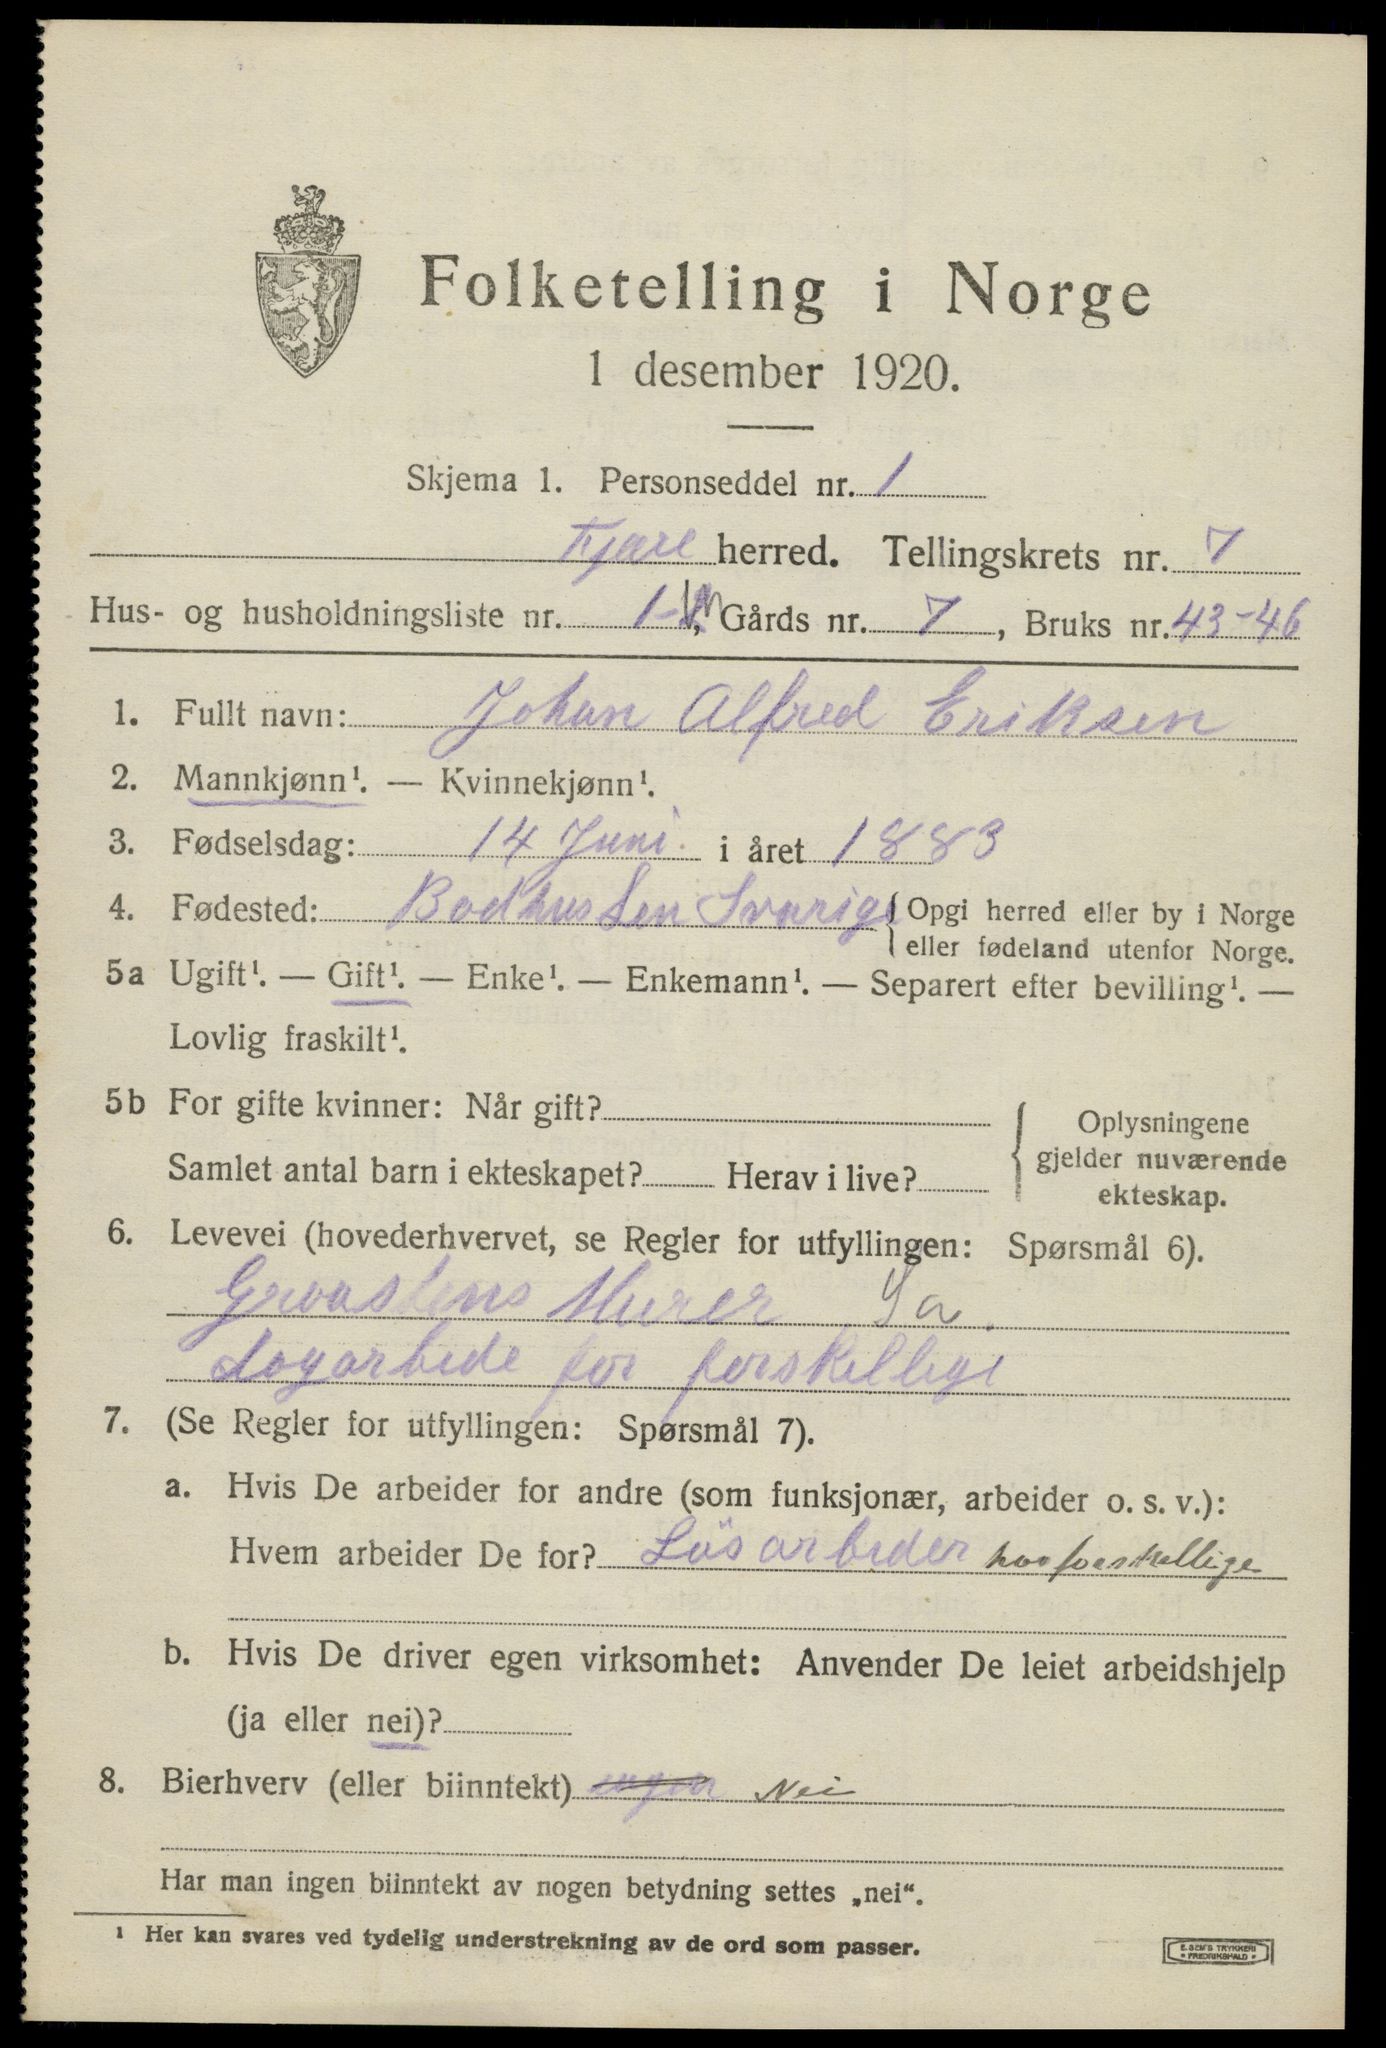 Folketelling i Norge
1 desember 1920.
Skjema 1. Personseddel nr. 1
Fjære herred. Tellingskrets nr. 7
Hus- og husholdningsliste nr. 1-, Gårds nr. 7, Bruks nr. 43-46
1. Fullt navn: Johan Alfred Eriksen
2. Mannkjønn¹. — Kvinnekjønn¹.
3. Fødselsdag: 14 Juni. i året 1883
4. Fødested: Bodhus Len Svarige { Opgi herred eller by i Norge
eller fødeland utenfor Norge.
5a Ugift¹. — Gift¹. — Enke¹. — Enkemann¹. — Separert efter bevilling¹. —
Lovlig fraskilt¹.
5b For gifte kvinner: Når gift?
Samlet antal barn i ekteskapet? Herav i live?
{ Oplysningene
gjelder nuværende
ekteskap.
6. Levevei (hovederhvervet, se Regler for utfyllingen: Spørsmål 6).
Graastens Murer
arbede for forskellige
7. (Se Regler for utfyllingen: Spørsmål 7).
a. Hvis De arbeider for andre (som funksjonær, arbeider o. s. v.):
Hvem arbeider De for? Lösarbeder hos forskellige
b. Hvis De driver egen virksomhet: Anvender De leiet arbeidshjelp
(ja eller nei)?
8. Bierhverv (eller biinntekt) ingen Nei
Har man ingen biinntekt av nogen betydning settes „nei“.
¹ Her kan svares ved tydelig understrekning av de ord som passer.
E. SEM'S TRYKKERI
• FREDRIKSHALD •